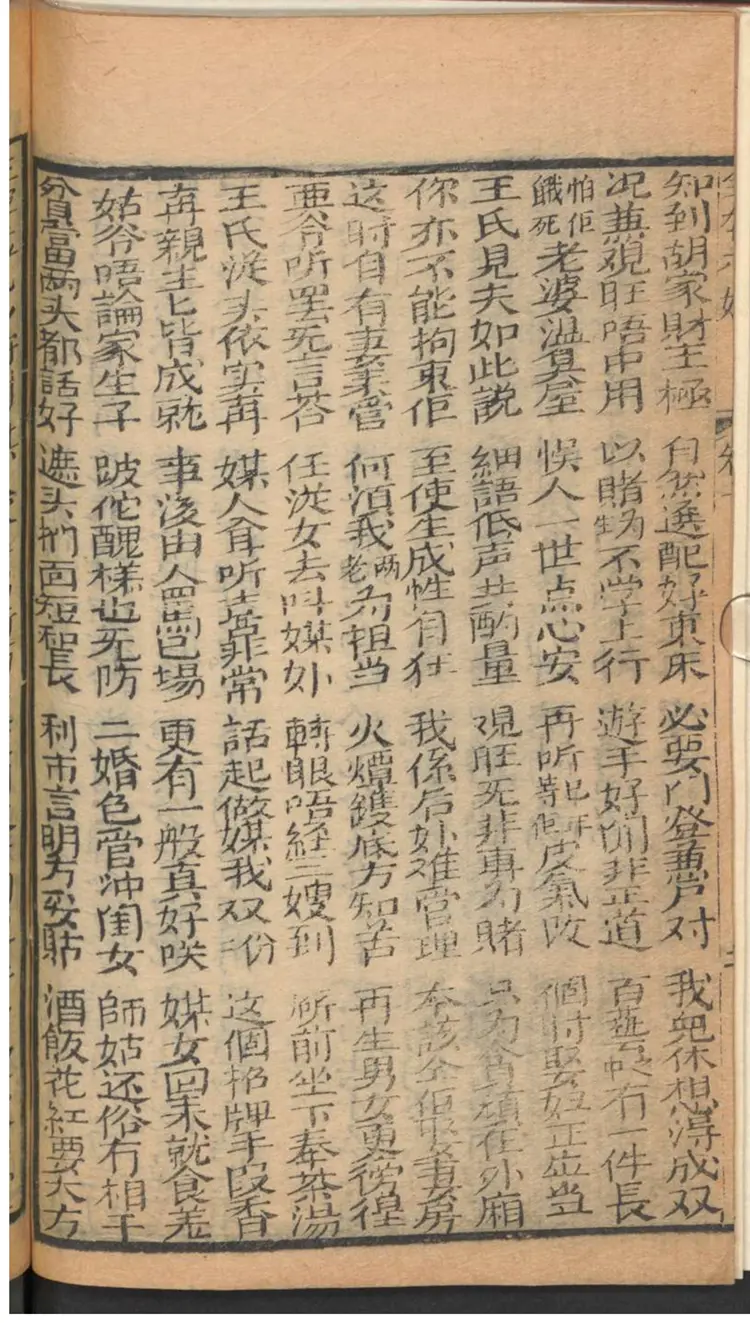 知到胡家財主極 自然選配好東床 必要门登兼戸对 我兜休想淂成双
况兼覌旺唔中用 以賭為生不学上行 遊手好閒非正道 百藝 有一件長
怕佢餓死老婆温臭屋 悮人一世点心安 再听 等佢皮氣改 個时娶妇正应当
王氏見夫如此說 細語低声共酌量 覌旺无非專为賭 只为貪頑在外廂
你亦不能拘束佢 至使生成性自狂 我係后 难管理 本該全佢娶妻房
这时自有妻 管 何須我两老为担当 火燂鑊底方知苦 再生男女更徬徨
亜爷听罢无言答 任従女去叫媒 轉眼唔経三嫂到 前坐下奉茶湯
王氏従头依实再 媒人耷听喜非常 話起做媒我双二份 这個招牌手段香
再親生 皆成就 事後由人罵巳場 更有一般真好咲 媒女回未就食羌
姑爷唔論家生子 跛佗醜様也无防 二婚色管冲閨女 師姑还俗冇相干
貧富两头都話好 遮头捫面短和長 利市言明方妥貼 酒飯花紅要大方